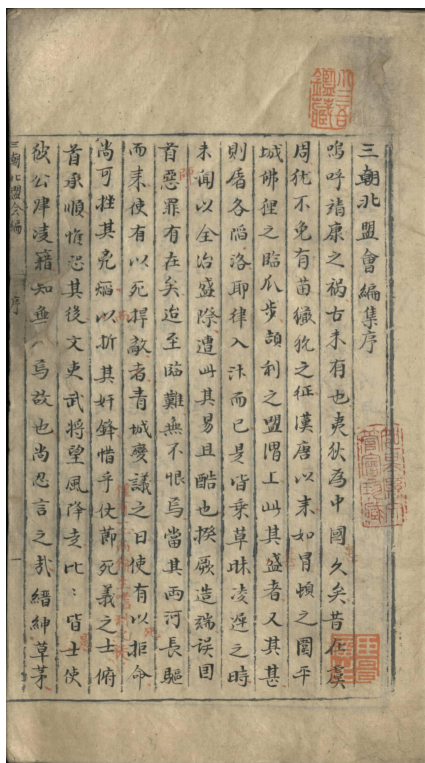 三朝北盟會編集序
嗚呼靖康之祸古未有也夷狄為中國久矣昔在虞
周犹不免有苗玁狁之征漢唐以来如冒頓之圍平
城佛狸之臨瓜步頡利之盟渭上此其盛者又其甚
則屠各陷洛耶律入汴而已是皆乗草昧凌遅之時
未闻以全治盛際遭此其易且酷也揆厥造端误国
首惡罪有在矣迨至臨難無不恨焉當其两河長驅
而来使有以死捍敵者青城廢議之日使有以拒命
尚可挫其兇焰以折其奸鋒惜乎仗節死義之士俯
首承順惟恐其後文吏武将望風降走比比皆士使
彼公肆凌籍知無人焉故也尚忍言之㢤縉紳草茅
三朝北盟会编
序
一